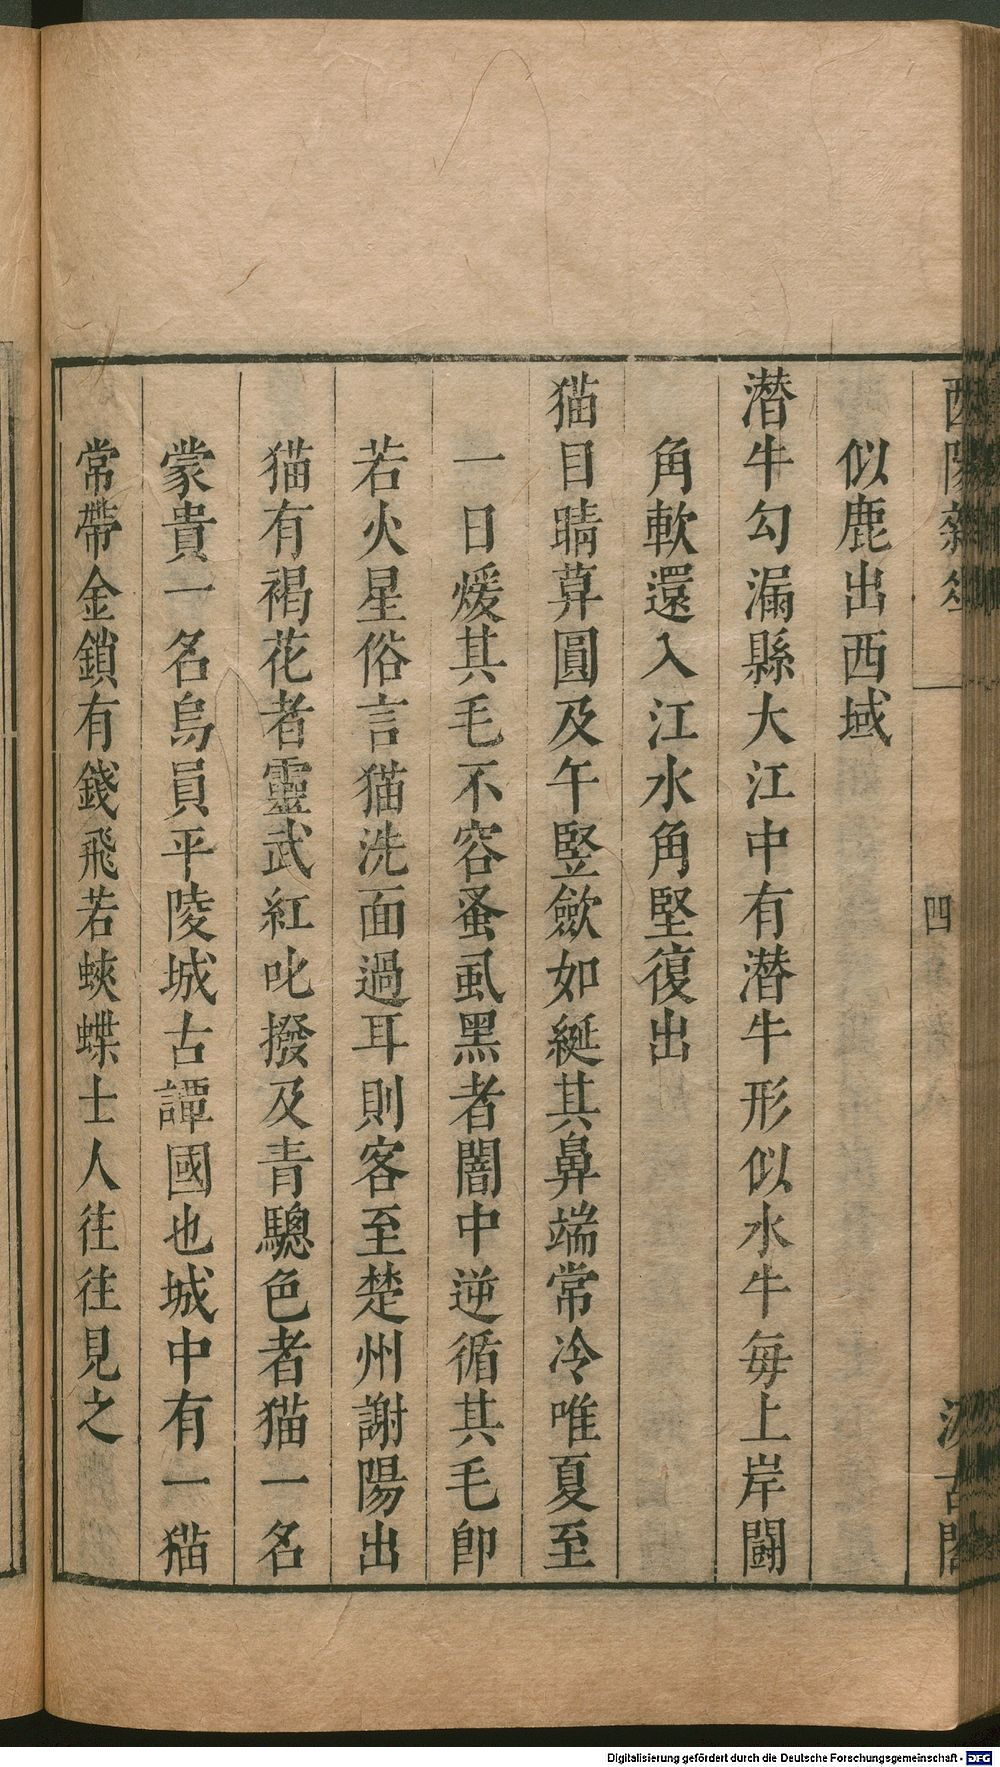 酉陽雜俎
四
汲古閣
似鹿出西域
潛牛勾漏縣大江中有潛牛形似水牛每上岸鬬
角軟還入江水角堅復出
猫目睛暮圓及午豎歛如綖其鼻端常冷唯夏至
一日煖其毛不容蚤虱黑者闇中逆循其毛即
若火星俗言猫洗面過耳則客至楚州謝陽出
猫有褐花者靈武紅叱撥及青驄色者猫一名
蒙貴一名烏員平陵城古譚國也城中有一猫
常帶金鎖有錢飛若蛺蝶士人往往見之
Digitalisierung gefördert durch die Deutsche Forschungsgemeinschaft - DFG